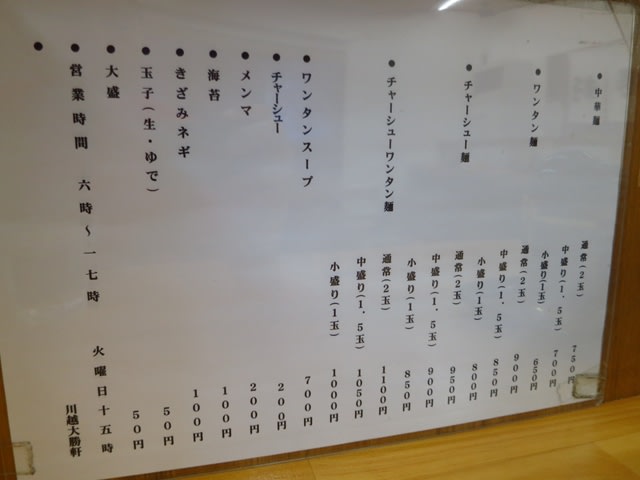 ●中華麺
通常(2玉) 750円
中盛り(1.5玉) 700円
小盛り(1玉) 650円
●ワンタン麺
通常(2玉) 900円
中盛り(1.5玉) 850円
小盛り(1玉) 800円
●チャーシュー麺
通常(2玉) 950円
中盛り(1.5玉) 900円
小盛り(1玉) 850円
●チャーシューワンタン麺
通常(2玉) 1100円
中盛り(1.5玉) 1050円
小盛り(1玉) 1000円
●ワンタンスープ 700円
●チャーシュー 200円
●メンマ 200円
●海苔 100円
●きざみネギ 100円
●玉子(生・ゆで) 50円
●大盛 50円
●営業時間 六時〜一七時 火曜日十五時
● 川越大勝軒